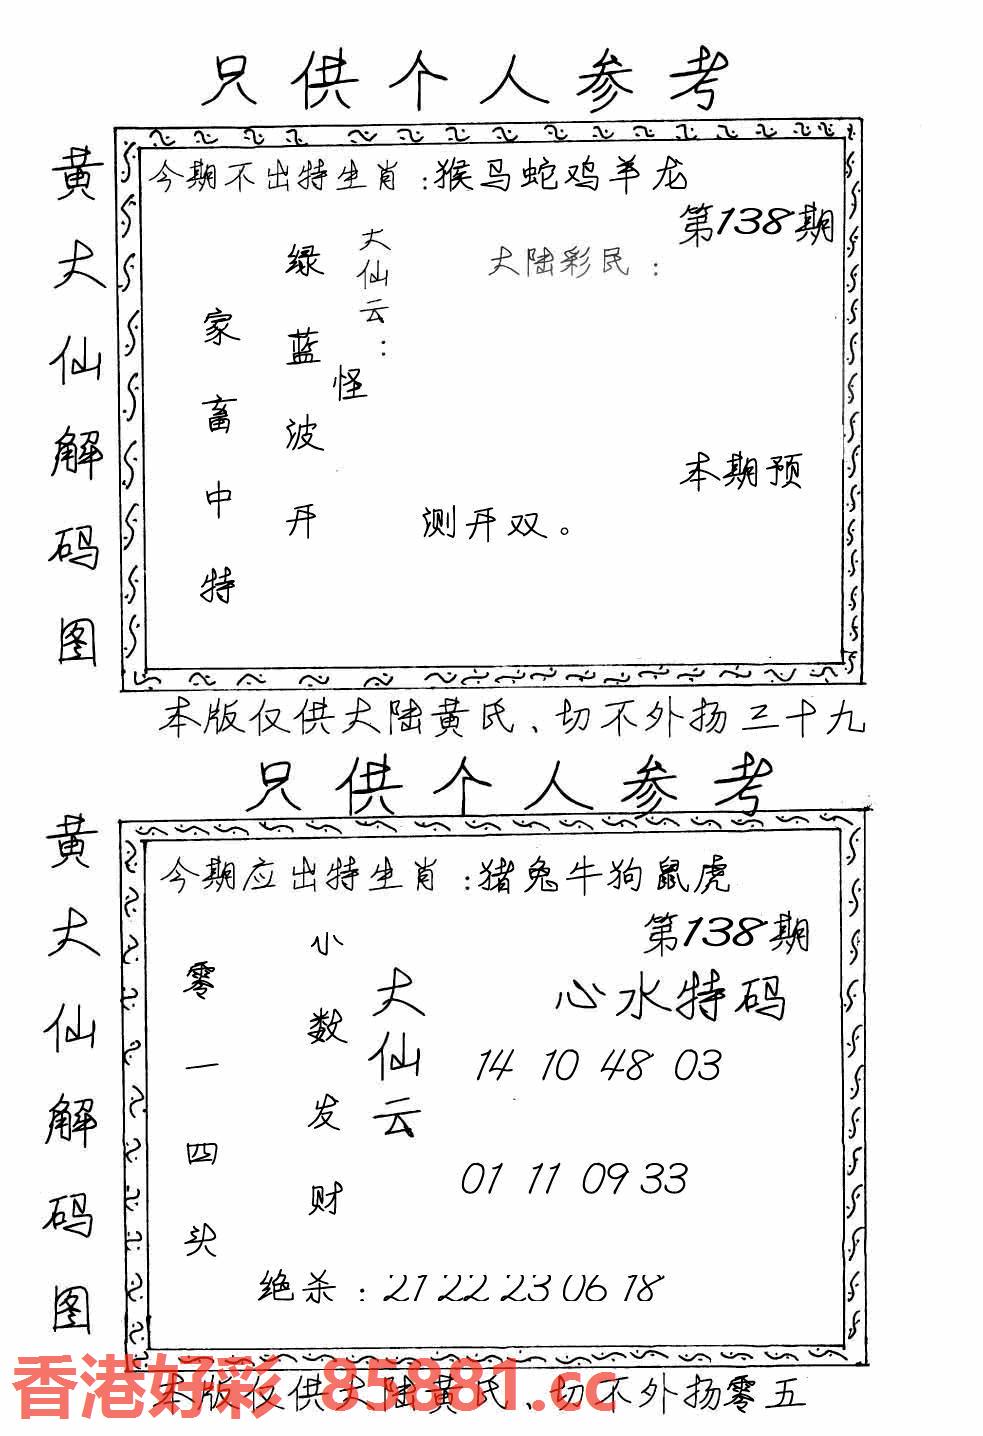 只供个人参考
黄大仙解码图
今期不出特生肖:猴马蛇鸡羊龙
第138期
大陆彩民:
大仙云:
怪
绿蓝波开
家畜中特
本期预
测开双。
本版仅供大陆黄氏、切不外扬三十九
只供个人参考
黄大仙解码图
今期应出特生肖:猪兔牛狗鼠虎
第138期
心水特码
大仙云
小数发财
零一四头
14 10 48 03
01 11 09 33
绝杀:21 22 23 06 18
香港好彩 85881.cc
本版仅供大陆黄氏、切不外扬零五